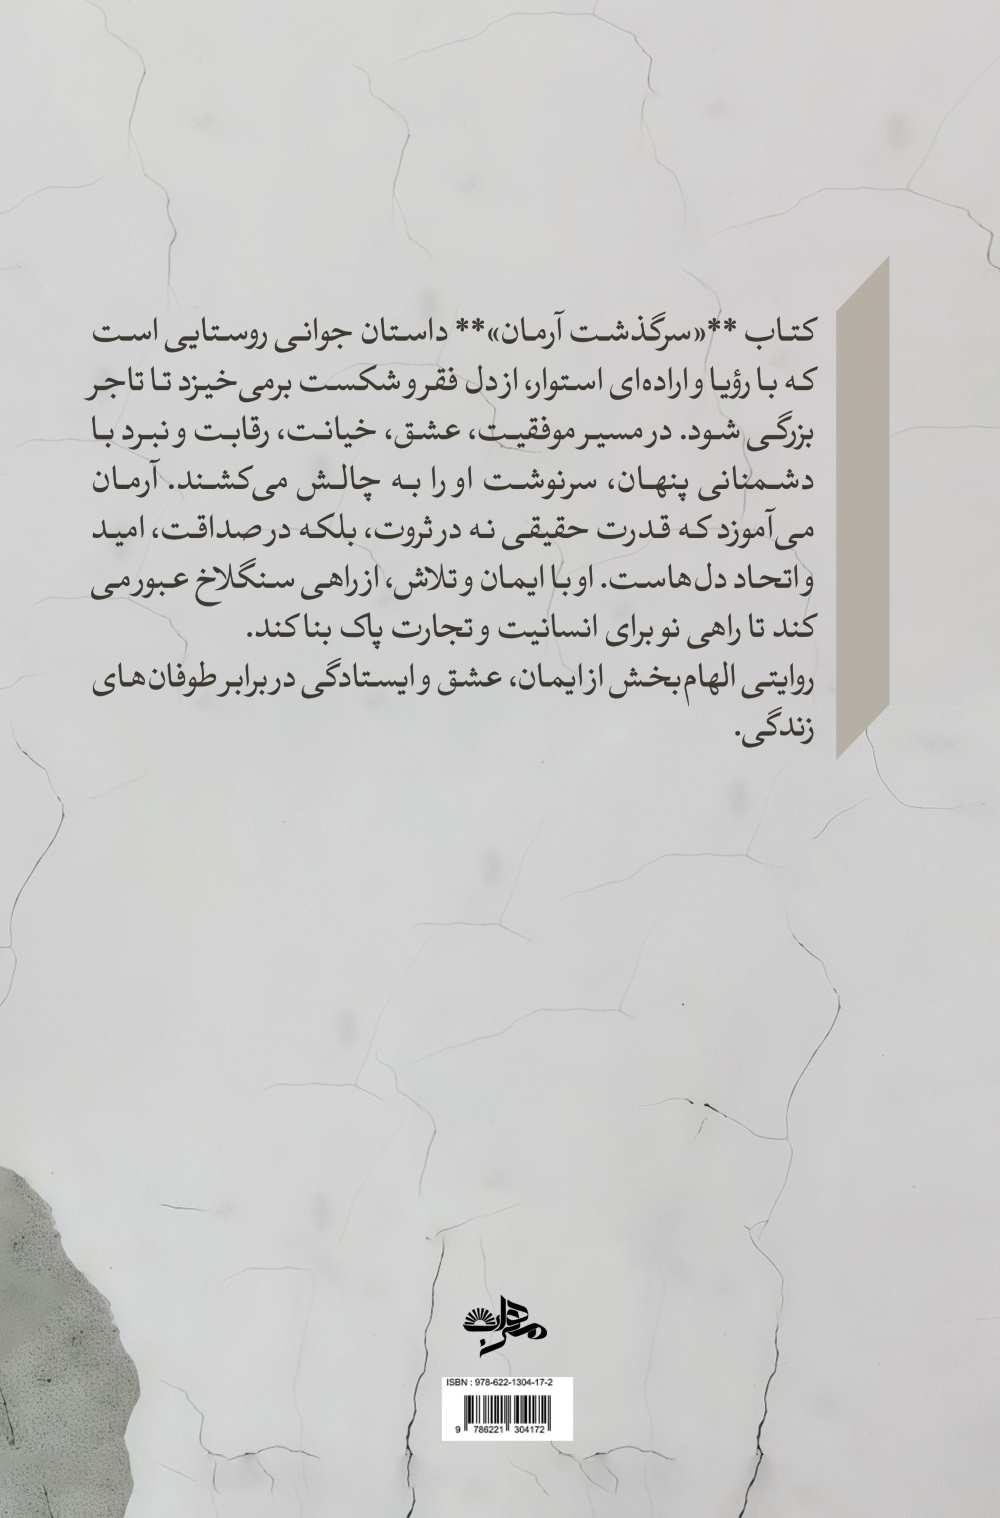 کتاب **«سرگذشت آرمان»** داستان جوانی روستایی است
که با رؤیا و اراده‌ای استوار، از دل فقر و شکست برمی‌خیزد تا تاجر
بزرگی شود. در مسیر موفقیت، عشق، خیانت، رقابت و نبرد با
دشمنانی پنهان، سرنوشت او را به چالش می‌کشند. آرمان
می‌آموزد که قدرت حقیقی نه در ثروت، بلکه در صداقت، امید
و اتحاد دل‌هاست. او با ایمان و تلاش، از راهی سنگلاخ عبور می
کند تا راهی نو برای انسانیت و تجارت پاک بنا کند.
روایتی الهام‌بخش از ایمان، عشق و ایستادگی در برابر طوفان‌های
زندگی.
ISBN : 978-622-1304-17-2
9 786221 304172